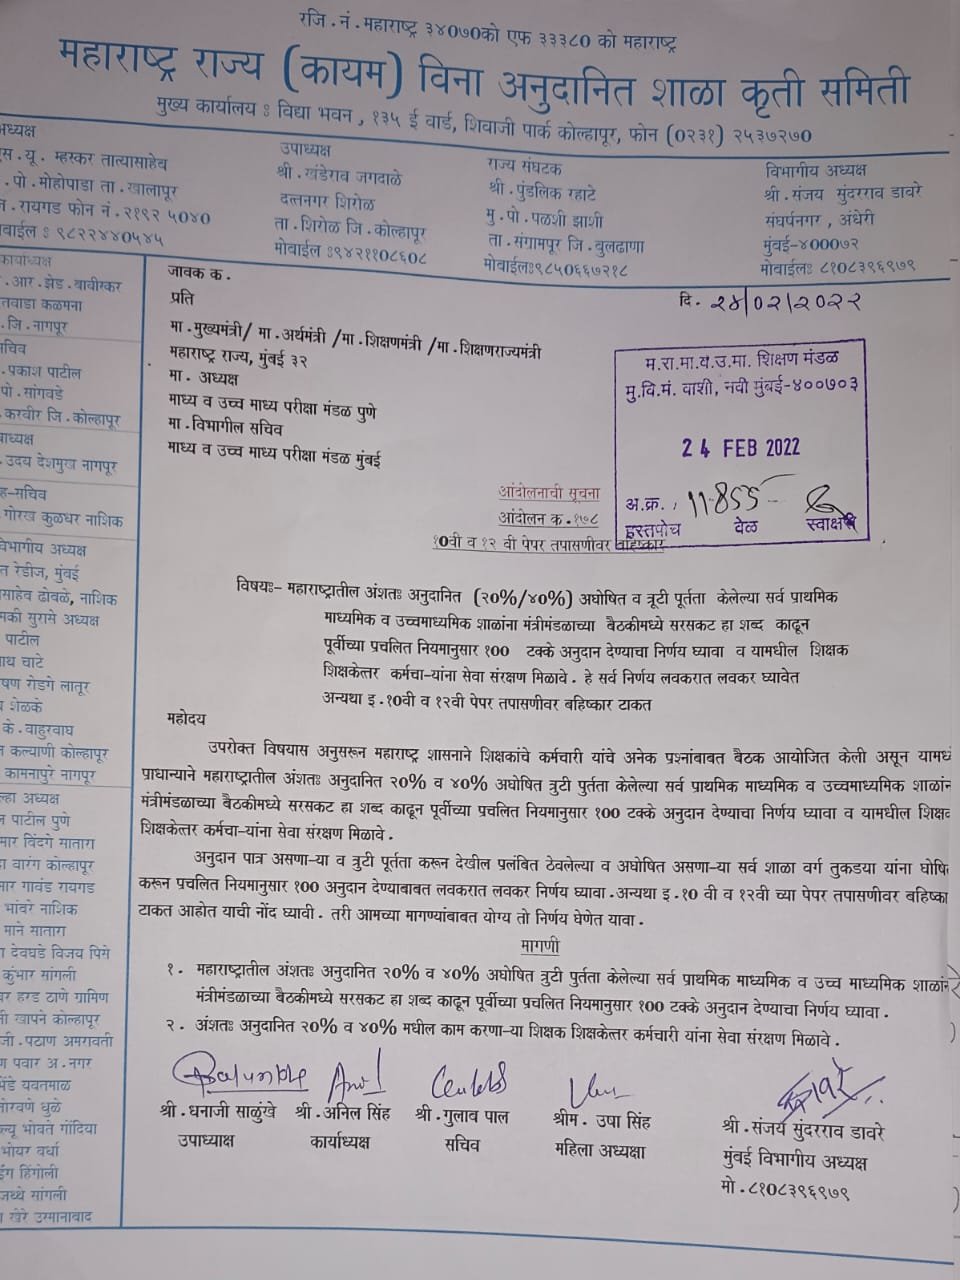 रजि.नं.महाराष्ट्र ३४०७०को एफ ३३३८० को महाराष्ट्र
महाराष्ट्र राज्य (कायम) विना अनुदानित शाळा कृती समिती
मुख्य कार्यालय : विद्या भवन, १३५ ई वार्ड, शिवाजी पार्क कोल्हापूर, फोन (०२३१) २५३७२७०
अध्यक्ष
एस.यू. म्हस्कर तात्यासाहेब
.पो.मोहोपाडा ता.खालापूर
.रायगड फोन नं.२१९२ ५०४०
मोबाईल : ९८२२४४०५४५
उपाध्यक्ष
श्री.खंडेराव जगदाळे
दत्तनगर शिरोळ
ता.शिरोळ जि.कोल्हापूर
मोबाईल :९४२११०८६०८
राज्य संघटक
श्री.पुंडलिक रहाटे
मु.पो.पळशी झाशी
ता.संग्रामपूर जि.बुलढाणा
मोबाईलः९८५०६६७२१८
विभागीय अध्यक्ष
श्री.संजय सुंदरराव डावरे
संघर्षनगर, अंधेरी
मुंबई-४०००७२
मोबाईलः ८१०८३९६९७९
कार्याध्यक्ष
.आर.झेड.बावीस्कर
तवाडा कळमना
.जि.नागपूर
सचिव
.प्रकाश पाटील
पो.सांगवडे
.करवीर जि.कोल्हापूर
पाध्यक्ष
.उदय देशमुख नागपूर
ह-सचिव
गोरख कुळधर नाशिक
विभागीय अध्यक्ष
त रेडीज, मुंबई
साहेब ढोवळे, नाशिक
मकी सुरासे अध्यक्ष
पाटील
ाथ चाटे
षण रोडगे लातूर
शेळके
के.वाहुरवाघ
कल्याणी कोल्हापूर
कामनापुरे नागपूर
ल्हा अध्यक्ष
पाटील पुणे
मार विंदगे सातारा
वारंग कोल्हापूर
मार गावंड रायगड
भांवरे नाशिक
माने सातारा
देवघडे विजय पिसे
कुंभार सांगली
वर हरड ठाणे ग्रामिण
ी खापने कोल्हापूर
जी.पठाण अमरावती
पवार अ.नगर
मेंडे यवतमाळ
गोरवणे धुळे
ल्यू भोवते गोंदिया
भोयर वर्धा
ईंग हिंगोली
जथ्थे सांगली
खेरे उस्मानाबाद
जावक क.
दि. २४/०२/२०२२
प्रति
मा.मुख्यमंत्री/ मा.अर्थमंत्री /मा.शिक्षणमंत्री /मा.शिक्षणराज्यमंत्री
महाराष्ट्र राज्य, मुंबई ३२
मा. अध्यक्ष
माध्य व उच्च माध्य परीक्षा मंडळ पुणे
मा.विभागील सचिव
माध्य व उच्च माध्य परीक्षा मंडळ मुंबई
म.रा.मा.व.उ.मा. शिक्षण मंडळ
मु.वि.मं. वाशी, नवी मुंबई-४००७०३
24 FEB 2022
अ.क्र., 11855
हस्तपोच वेळ स्वाक्षरी
आंदोलनाची सूचना
आंदोलन क.१७८
१०वी व १२ वी पेपर तपासणीवर बहिष्कार
विषयः- महाराष्ट्रातील अंशतः अनुदानित (२०%/४०%) अघोषित व त्रूटी पूर्तता केलेल्या सर्व प्राथमिक
माध्यमिक व उच्चमाध्यमिक शाळांना मंत्रीमंडळाच्या बैठकीमध्ये सरसकट हा शब्द काढून
पूर्वीच्या प्रचलित नियमानुसार १०० टक्के अनुदान देण्याचा निर्णय घ्यावा व यामधील शिक्षक
शिक्षकेत्तर कर्मचा-यांना सेवा संरक्षण मिळावे. हे सर्व निर्णय लवकरात लवकर घ्यावेत
अन्यथा इ.१०वी व १२वी पेपर तपासणीवर बहिष्कार टाकत
महोदय
उपरोक्त विषयास अनुसरून महाराष्ट्र शासनाने शिक्षकांचे कर्मचारी यांचे अनेक प्रश्नांबाबत बैठक आयोजित केली असून यामध्ये
प्राधान्याने महाराष्ट्रातील अंशतः अनुदानित २०% व ४०% अघोषित त्रुटी पुर्तता केलेल्या सर्व प्राथमिक माध्यमिक व उच्चमाध्यमिक शाळांना
मंत्रीमंडळाच्या बैठकीमध्ये सरसकट हा शब्द काढून पूर्वीच्या प्रचलित नियमानुसार १०० टक्के अनुदान देण्याचा निर्णय घ्यावा व यामधील शिक्षक
शिक्षकेत्तर कर्मचा-यांना सेवा संरक्षण मिळावे.
अनुदान पात्र असणा-या व त्रुटी पूर्तता करून देखील प्रलंबित ठेवलेल्या व अघोषित असणा-या सर्व शाळा वर्ग तुकडया यांना घोषित
करून प्रचलित नियमानुसार १०० अनुदान देण्याबाबत लवकरात लवकर निर्णय घ्यावा.अन्यथा इ.१० वी व १२वी च्या पेपर तपासणीवर बहिष्कार
टाकत आहोत याची नोंद घ्यावी. तरी आमच्या मागण्यांबाबत योग्य तो निर्णय घेणेत यावा.
मागणी
१. महाराष्ट्रातील अंशतः अनुदानित २०% व ४०% अघोषित त्रुटी पुर्तता केलेल्या सर्व प्राथमिक माध्यमिक व उच्च माध्यमिक शाळांना
मंत्रीमंडळाच्या बैठकीमध्ये सरसकट हा शब्द काढून पूर्वीच्या प्रचलित नियमानुसार १०० टक्के अनुदान देण्याचा निर्णय घ्यावा.
२. अंशतः अनुदानित २०% व ४०% मधील काम करणा-या शिक्षक शिक्षकेत्तर कर्मचारी यांना सेवा संरक्षण मिळावे.
श्री.धनाजी साळुंखे श्री.अनिल सिंह श्री.गुलाव पाल श्रीम. उषा सिंह श्री.संजय सुंदरराव डावरे
उपाध्याक्ष कार्याध्यक्ष सचिव महिला अध्यक्षा मुंबई विभागीय अध्यक्ष
मो.८१०८३९६९७९